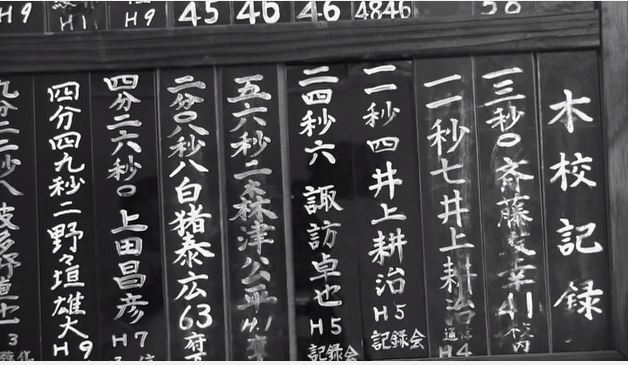 4846
46
46
45
H9
H1
H9
本校記録
一三秒〇 斎藤 幸 41 校内
一一秒七 井上耕治 H4
一一秒四 井上耕治 H5 記録会
二四秒六 諏訪卓也 H5 記録会
五六秒二 森津公平 H.1
二分〇八秒八 白猪泰広 63 府
四分二六秒〇 上田昌彦 H7
四分四九秒二 野々垣雄大 H9
九分二二秒八 波多野道 3